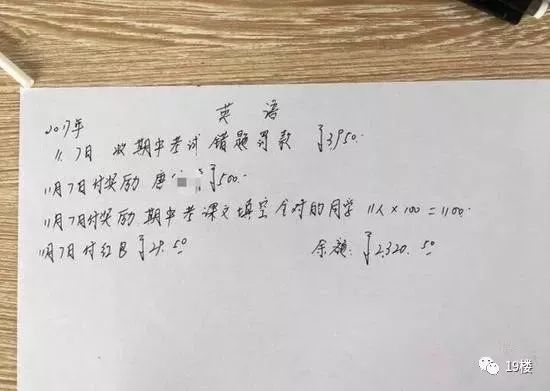 英语
2017年
11.7日 收期中考试错题罚款 ¥3950.
11月7日付奖励 唐 ¥500.
11月7日付奖励 期中考课文填空全对的同学 11人×100=1100.
11月7日付红包 ¥29.50 余额: ¥2,320.50
19楼